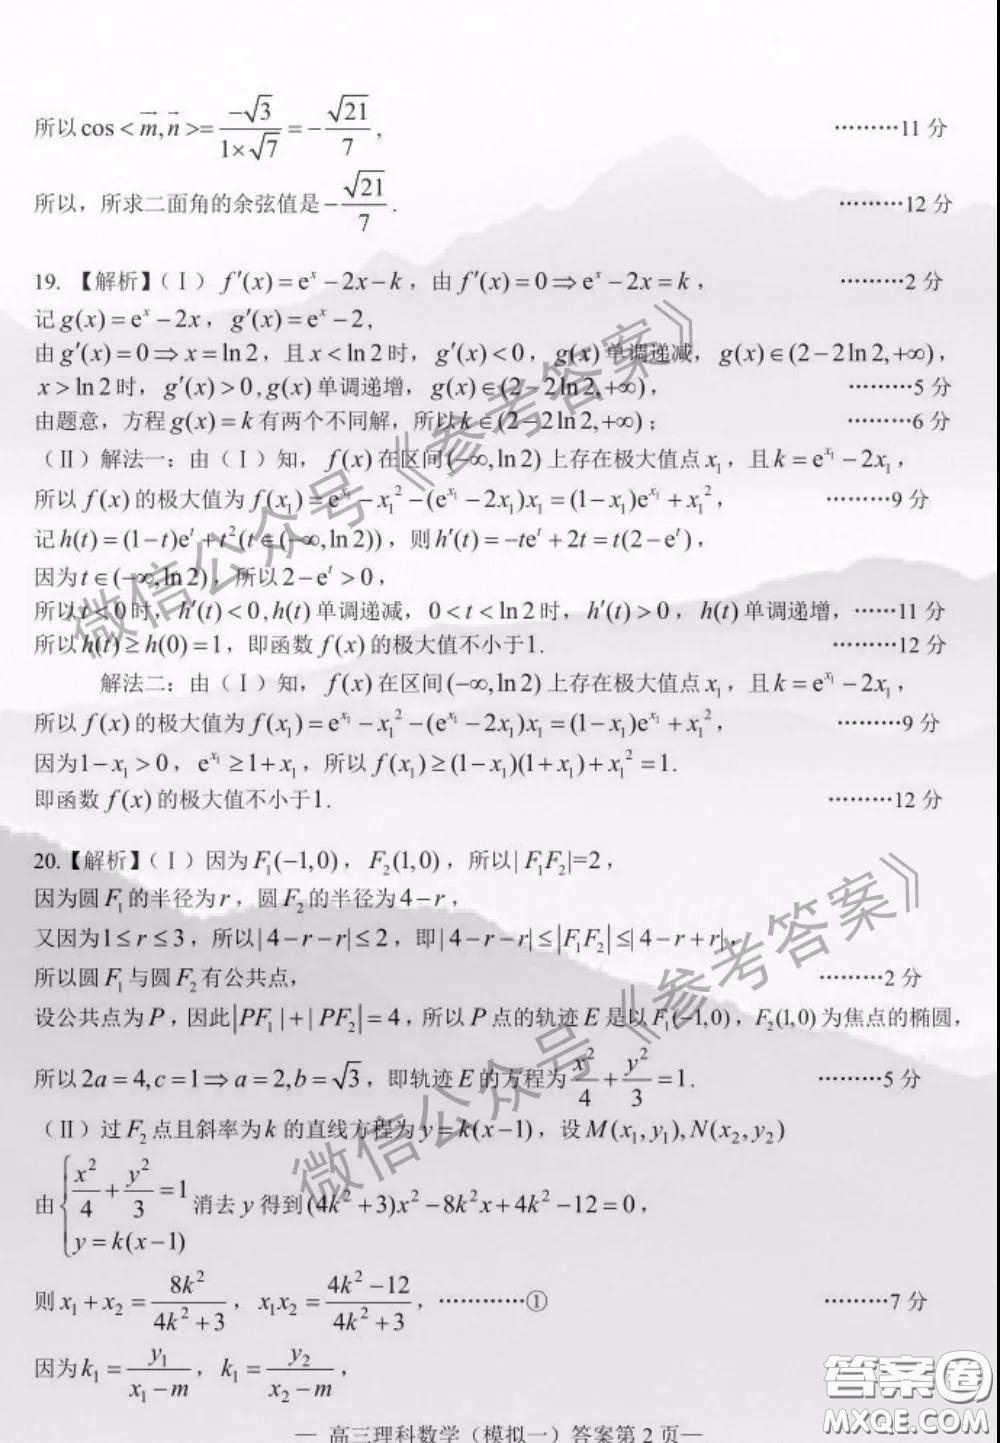 所以cos<m⃗,n⃗>=\frac{-√3}{1×√7}=-\frac{√21}{7}, ………11分
所以，所求二面角的余弦值是-\frac{√21}{7}. ………12分
19. 【解析】(Ⅰ) f′(x)=e^x-2x-k，由f′(x)=0⇒e^x-2x=k， ………2分
记g(x)=e^x-2x，g′(x)=e^x-2,
由g′(x)=0⇒x=ln2，且x<ln2时，g′(x)<0，g(x)单调递减，g(x)∈(2-2ln2,+∞)，
x>ln2时，g′(x)>0,g(x)单调递增，g(x)∈(2-2ln2,+∞)， ………5分
由题意，方程g(x)=k有两个不同解，所以k∈(2-2ln2,+∞)； ………6分
(Ⅱ) 解法一：由(Ⅰ)知，f(x)在区间(-∞,ln2)上存在极大值点x₁，且k=e^{x₁}-2x₁，
所以f(x)的极大值为f(x₁)=e^{x₁}-x₁²-(e^{x₁}-2x₁)x₁=(1-x₁)e^{x₁}+x₁²， ………9分
记h(t)=(1-t)e^t+t²(t∈(-∞,ln2))，则h′(t)=-te^t+2t=t(2-e^t)，
因为t∈(-∞,ln2)，所以2-e^t>0，
所以t<0时，h′(t)<0,h(t)单调递减，0<t<ln2时，h′(t)>0，h(t)单调递增，……11分
所以h(t)≥h(0)=1，即函数f(x)的极大值不小于1. ………12分
解法二：由(Ⅰ)知，f(x)在区间(-∞,ln2)上存在极大值点x₁，且k=e^{x₁}-2x₁，
所以f(x)的极大值为f(x₁)=e^{x₁}-x₁²-(e^{x₁}-2x₁)x₁=(1-x₁)e^{x₁}+x₁²， ………9分
因为1-x₁>0，e^{x₁}≥1+x₁，所以f(x₁)≥(1-x₁)(1+x₁)+x₁²=1.
即函数f(x)的极大值不小于1. ………12分
20.【解析】(Ⅰ) 因为F₁(-1,0)，F₂(1,0)，所以|F₁F₂|=2，
因为圆F₁的半径为r，圆F₂的半径为4-r，
又因为1≤r≤3，所以|4-r-r|≤2，即|4-r-r|≤|F₁F₂|≤|4-r+r|，
所以圆F₁与圆F₂有公共点， ………2分
设公共点为P，因此|PF₁|+|PF₂|=4，所以P点的轨迹E是以F₁(-1,0)，F₂(1,0)为焦点的椭圆，
所以2a=4,c=1⇒a=2,b=√3，即轨迹E的方程为\frac{x²}{4}+\frac{y²}{3}=1. ………5分
(Ⅱ) 过F₂点且斜率为k的直线方程为y=k(x-1)，设M(x₁,y₁),N(x₂,y₂)
由{\frac{x²}{4}+\frac{y²}{3}=1 y=k(x-1) 消去y得到(4k²+3)x²-8k²x+4k²-12=0，
则x₁+x₂=\frac{8k²}{4k²+3}，x₁x₂=\frac{4k²-12}{4k²+3}，…………① ………7分
因为k₁=\frac{y₁}{x₁-m}，k₁=\frac{y₂}{x₂-m}，
— 高三理科数学（模拟一）答案第2页—
微信公众号《参考答案》
微信公众号《参考答案》
答案圈
MXQE.COM